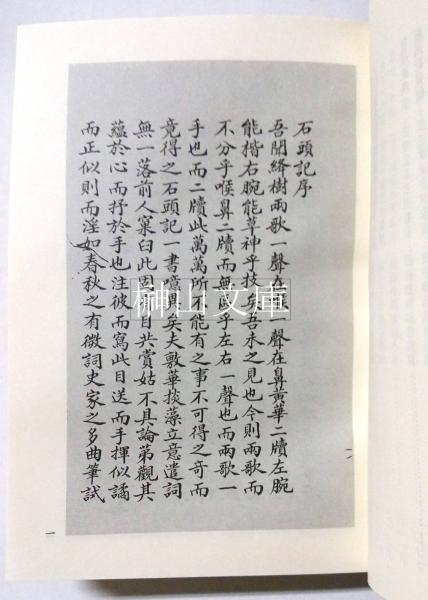 石頭記序
吾聞絳樹兩歌一聲在喉一聲在鼻黃華二牘左腕
能楷右腕能草神乎技矣吾未之見也今則兩歌而
不分乎喉鼻二牘而無區乎左右一聲也而兩歌一
手也而二牘此萬萬所不能有之事不可得之奇而
竟得之石頭記一書嘻異矣夫敷華掞藻立意遣詞
無一落前人窠臼此固有目共賞姑不具論第觀其
蘊於心而抒於手也注彼而寫此目送而手揮似譎
而正似則而淫如春秋之有微詞史家之多曲筆試
一
榊山文庫